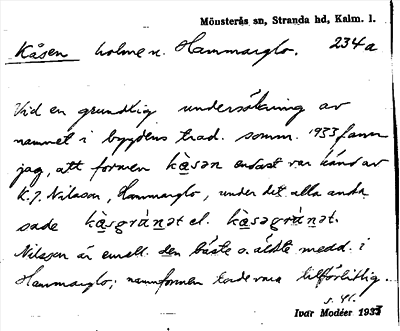 Mönsterås sn, Stranda hd, Kalm. l.
Kåsen holme n. Hammarglo. 234a
Vid en grundlig undersökning av
namnet i bygdens trad. somm. 1933 fann
jag, att formen kåsən endast var känd av
K.J. Nilsson, Hammarglo, under det alla andra
sade kåsgránət el. kåsəgránət.
Nilsson är emell. den bäste o. äldste medd. i
Hammarglo; namnformen torde vara tillförlitlig.
Ivar Modéer 1933